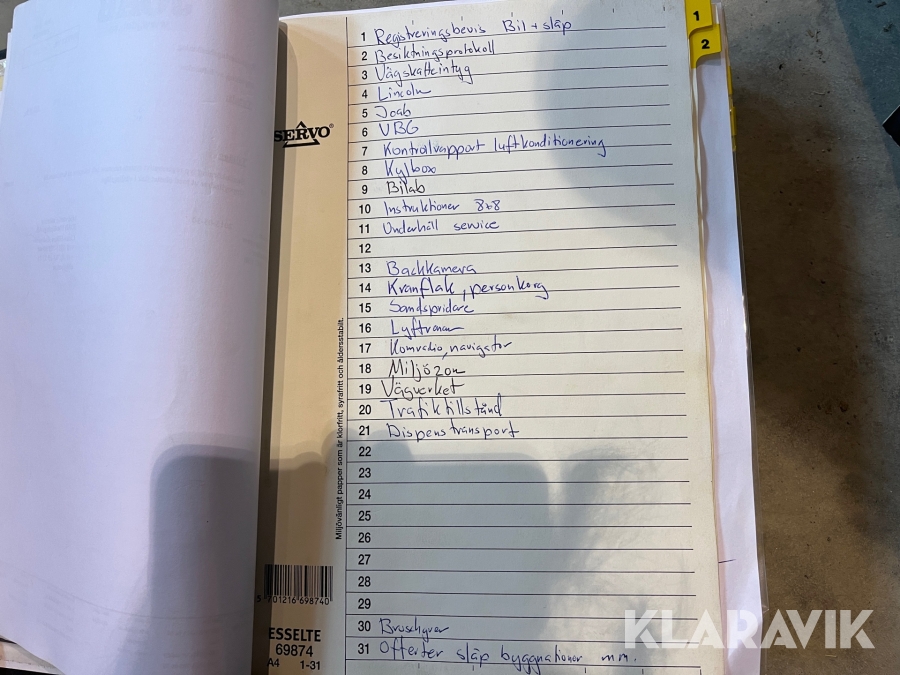 1 Registreringsbevis Bil + släp
2 Besiktningsprotokoll
3 Vägskatteintyg
4 Lincoln
5 Joab
6 VBG
7 Kontrollrapport luftkonditionering
8 Kylbox
9 Bilab
10 Instruktioner 8+8
11 Underhåll service
12
13 Backkamera
14 Kranflak, personkorg
15 Sandspridare
16 Lyftvanan
17 Komradio, navigator
18 Miljözon
19 Vägverket
20 Trafiktillstånd
21 Dispenstransport
22
23
24
25
26
27
28
29
30 Broschyrer
31 Offerter släp byggnationer mm.
SERVO®
Miljövänligt papper som är klorfritt, syrafritt och åldersstabilt.
5 701216 698740
ESSELTE
69874
A4 1-31
1
2
KLARAVIK